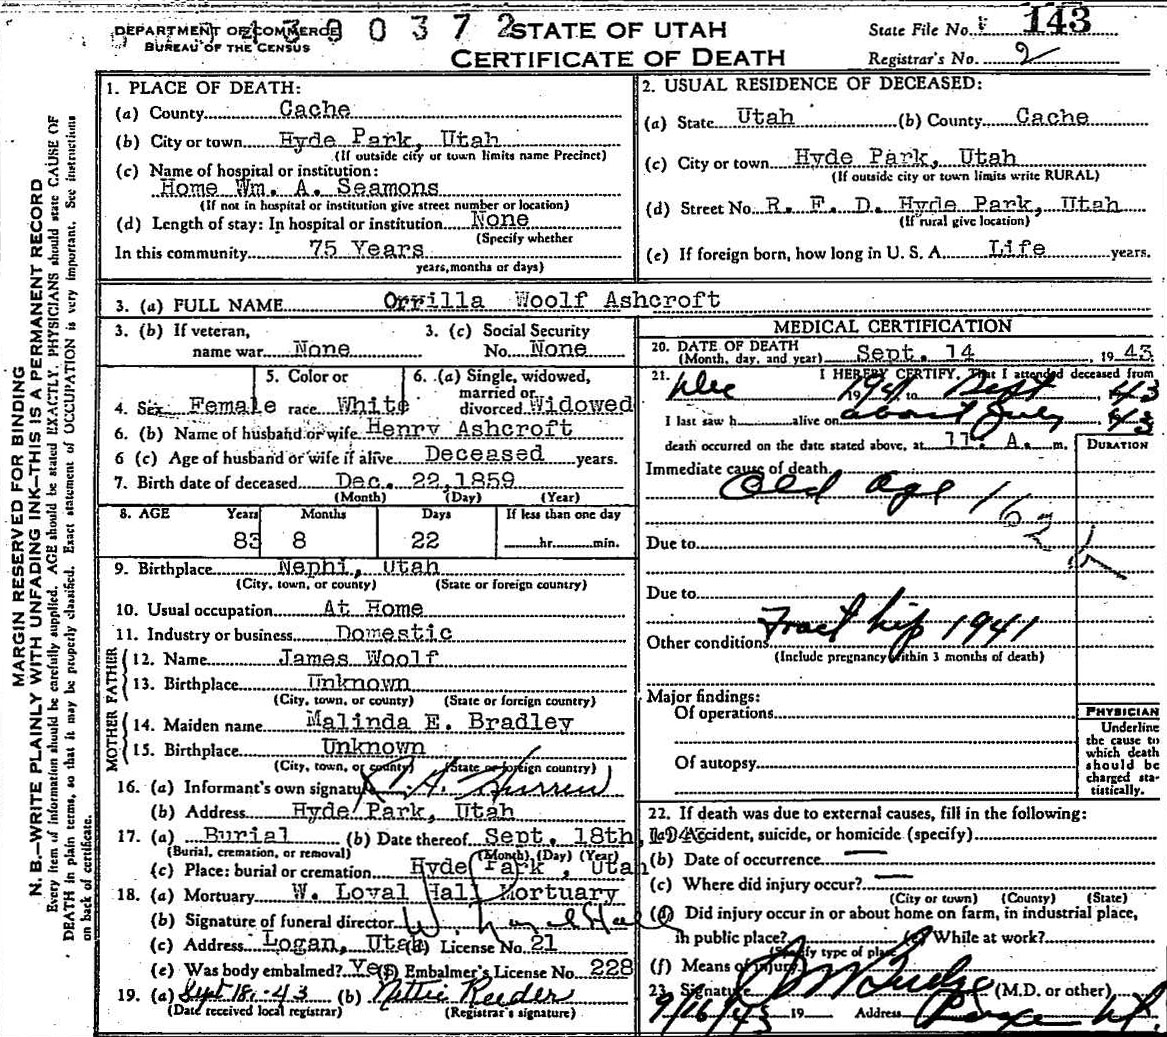 DEPARTMENT OF COMMERCE
BUREAU OF THE CENSUS
0 3 7 2
STATE OF UTAH
CERTIFICATE OF DEATH
State File No. 143
Registrar's No. 2
MARGIN RESERVED FOR BINDING
N. B.—WRITE PLAINLY WITH UNFADING INK—THIS IS A PERMANENT RECORD
Every item of information should be carefully supplied. AGE should be stated EXACTLY. PHYSICIANS should state CAUSE OF
DEATH in plain terms, so that it may be properly classified. Exact statement of OCCUPATION is very important. See instructions
on back of certificate.
1. PLACE OF DEATH:
(a) County Cache
(b) City or town Hyde Park, Utah
(If outside city or town limits name Precinct)
(c) Name of hospital or institution:
Home Wm. A. Seamons
(If not in hospital or institution give street number or location)
(d) Length of stay: In hospital or institution None
(Specify whether
In this community 75 Years
years, months or days)
2. USUAL RESIDENCE OF DECEASED:
(a) State Utah (b) County Cache
(c) City or town Hyde Park, Utah
(If outside city or town limits write RURAL)
(d) Street No. R. F. D. Hyde Park, Utah
(If rural give location)
(e) If foreign born, how long in U. S. A. Life years.
3. (a) FULL NAME Orrilla Woolf Ashcroft
3. (b) If veteran,
name war None
3. (c) Social Security
No. None
4. Sex Female
5. Color or
race White
6. (a) Single, widowed,
married or
divorced Widowed
6. (b) Name of husband or wife Henry Ashcroft
6 (c) Age of husband or wife if alive Deceased years.
7. Birth date of deceased Dec. 22, 1859
(Month) (Day) (Year)
8. AGE Years Months Days If less than one day
83 8 22 hr. min.
9. Birthplace Nephi, Utah
(City, town, or county) (State or foreign country)
10. Usual occupation At Home
11. Industry or business Domestic
FATHER
12. Name James Woolf
13. Birthplace Unknown
(City, town, or county) (State or foreign country)
MOTHER
14. Maiden name Malinda E. Bradley
15. Birthplace Unknown
(City, town, or county) (State or foreign country)
16. (a) Informant's own signature Hurren
(b) Address Hyde Park, Utah
17. (a) Burial (b) Date thereof Sept. 18th, 1943
(Burial, cremation, or removal) (Month) (Day) (Year)
(c) Place: burial or cremation Hyde Park, Utah
18. (a) Mortuary W. Loyal Hall Mortuary
(b) Signature of funeral director W. Loyal Hall
(c) Address Logan, Utah (d) License No. 21
(e) Was body embalmed? Yes (f) Embalmer's License No. 228
19. (a) Sept 18, -43 (b) Nettie Reeder
(Date received local registrar) (Registrar's signature)
MEDICAL CERTIFICATION
20. DATE OF DEATH
(Month, day, and year) Sept. 14, 1943
21. I HEREBY CERTIFY, That I attended deceased from
Dec 1941 to Sept, 43
I last saw h alive on about July, 43
death occurred on the date stated above, at 11. A. m.
DURATION
Immediate cause of death
Old age 162
Due to
Due to
Other conditions Fract hip 1941
(Include pregnancy within 3 months of death)
Major findings:
Of operations
Of autopsy
PHYSICIAN
Underline
the cause to
which death
should be
charged sta-
tistically.
22. If death was due to external causes, fill in the following:
(a) Accident, suicide, or homicide (specify)
(b) Date of occurrence —
(c) Where did injury occur? —
(City or town) (County) (State)
(d) Did injury occur in or about home on farm, in industrial place,
in public place? (e) While at work?
(Specify type of place)
(f) Means of injury
23. Signature (M.D. or other)
9/16/43 19 Address